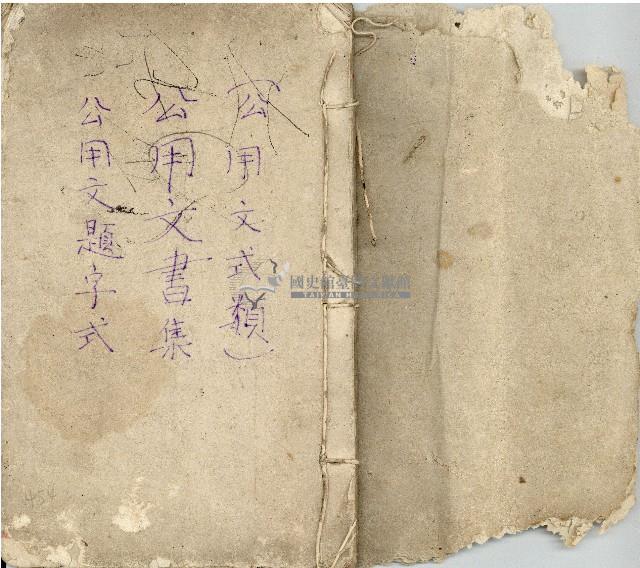 (公用文式類)
公用文書集
公用文題字式
國史館臺灣文獻館
TAIWAN HISTORICA
454